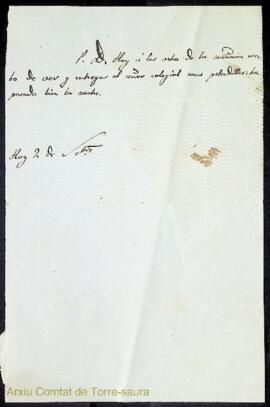 P. D. Hoy á las ocho de la mañana aca-
bo de ver y entregar al niño colegial unas peladillas: ha
pasado bien la noche.
Hoy 2 de 
Arxiu Comtat de Torre-saura